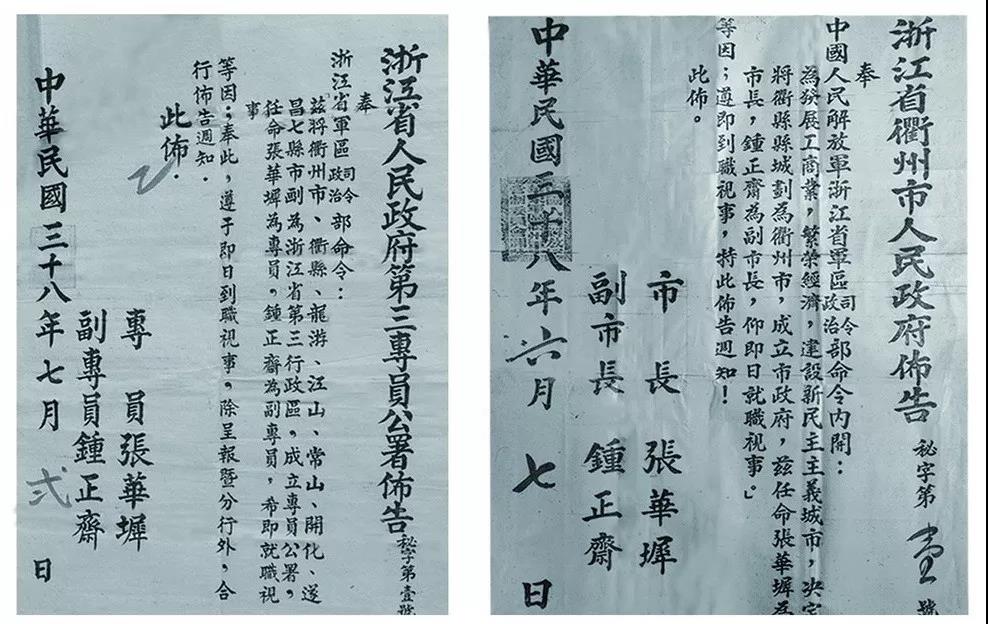 浙江省人民政府第三專員公署佈告 秘字第壹號
奉
浙江省軍區司令政治部命令：
茲將衢州市、衢縣、龍游、江山、常山、開化、遂
昌七縣市劃為浙江省第三行政區，成立專員公署，
任命張華墀為專員，鍾正齋為副專員，希即就職視
事
等因；奉此，遵于即日到職視事。除呈報暨分行外，合
行佈告週知．
此佈．
專員張華墀
副專員鍾正齋
中華民國三十八年七月弍日
浙江省衢州市人民政府佈告 秘字第壹號
奉
中國人民解放軍浙江省軍區司令政治部命令內開：
為發展工商業，繁荣經濟，建設新民主主義城市，决定
將衢縣縣城劃為衢州市，成立市政府，茲任命張華墀為
市長，鍾正齋為副市長，仰即日就職視事。」
等因；遵即到職視事，特此佈告週知！
此佈。
市長 張華墀
副市長 鍾正齋
中華民國三十八年六月七日